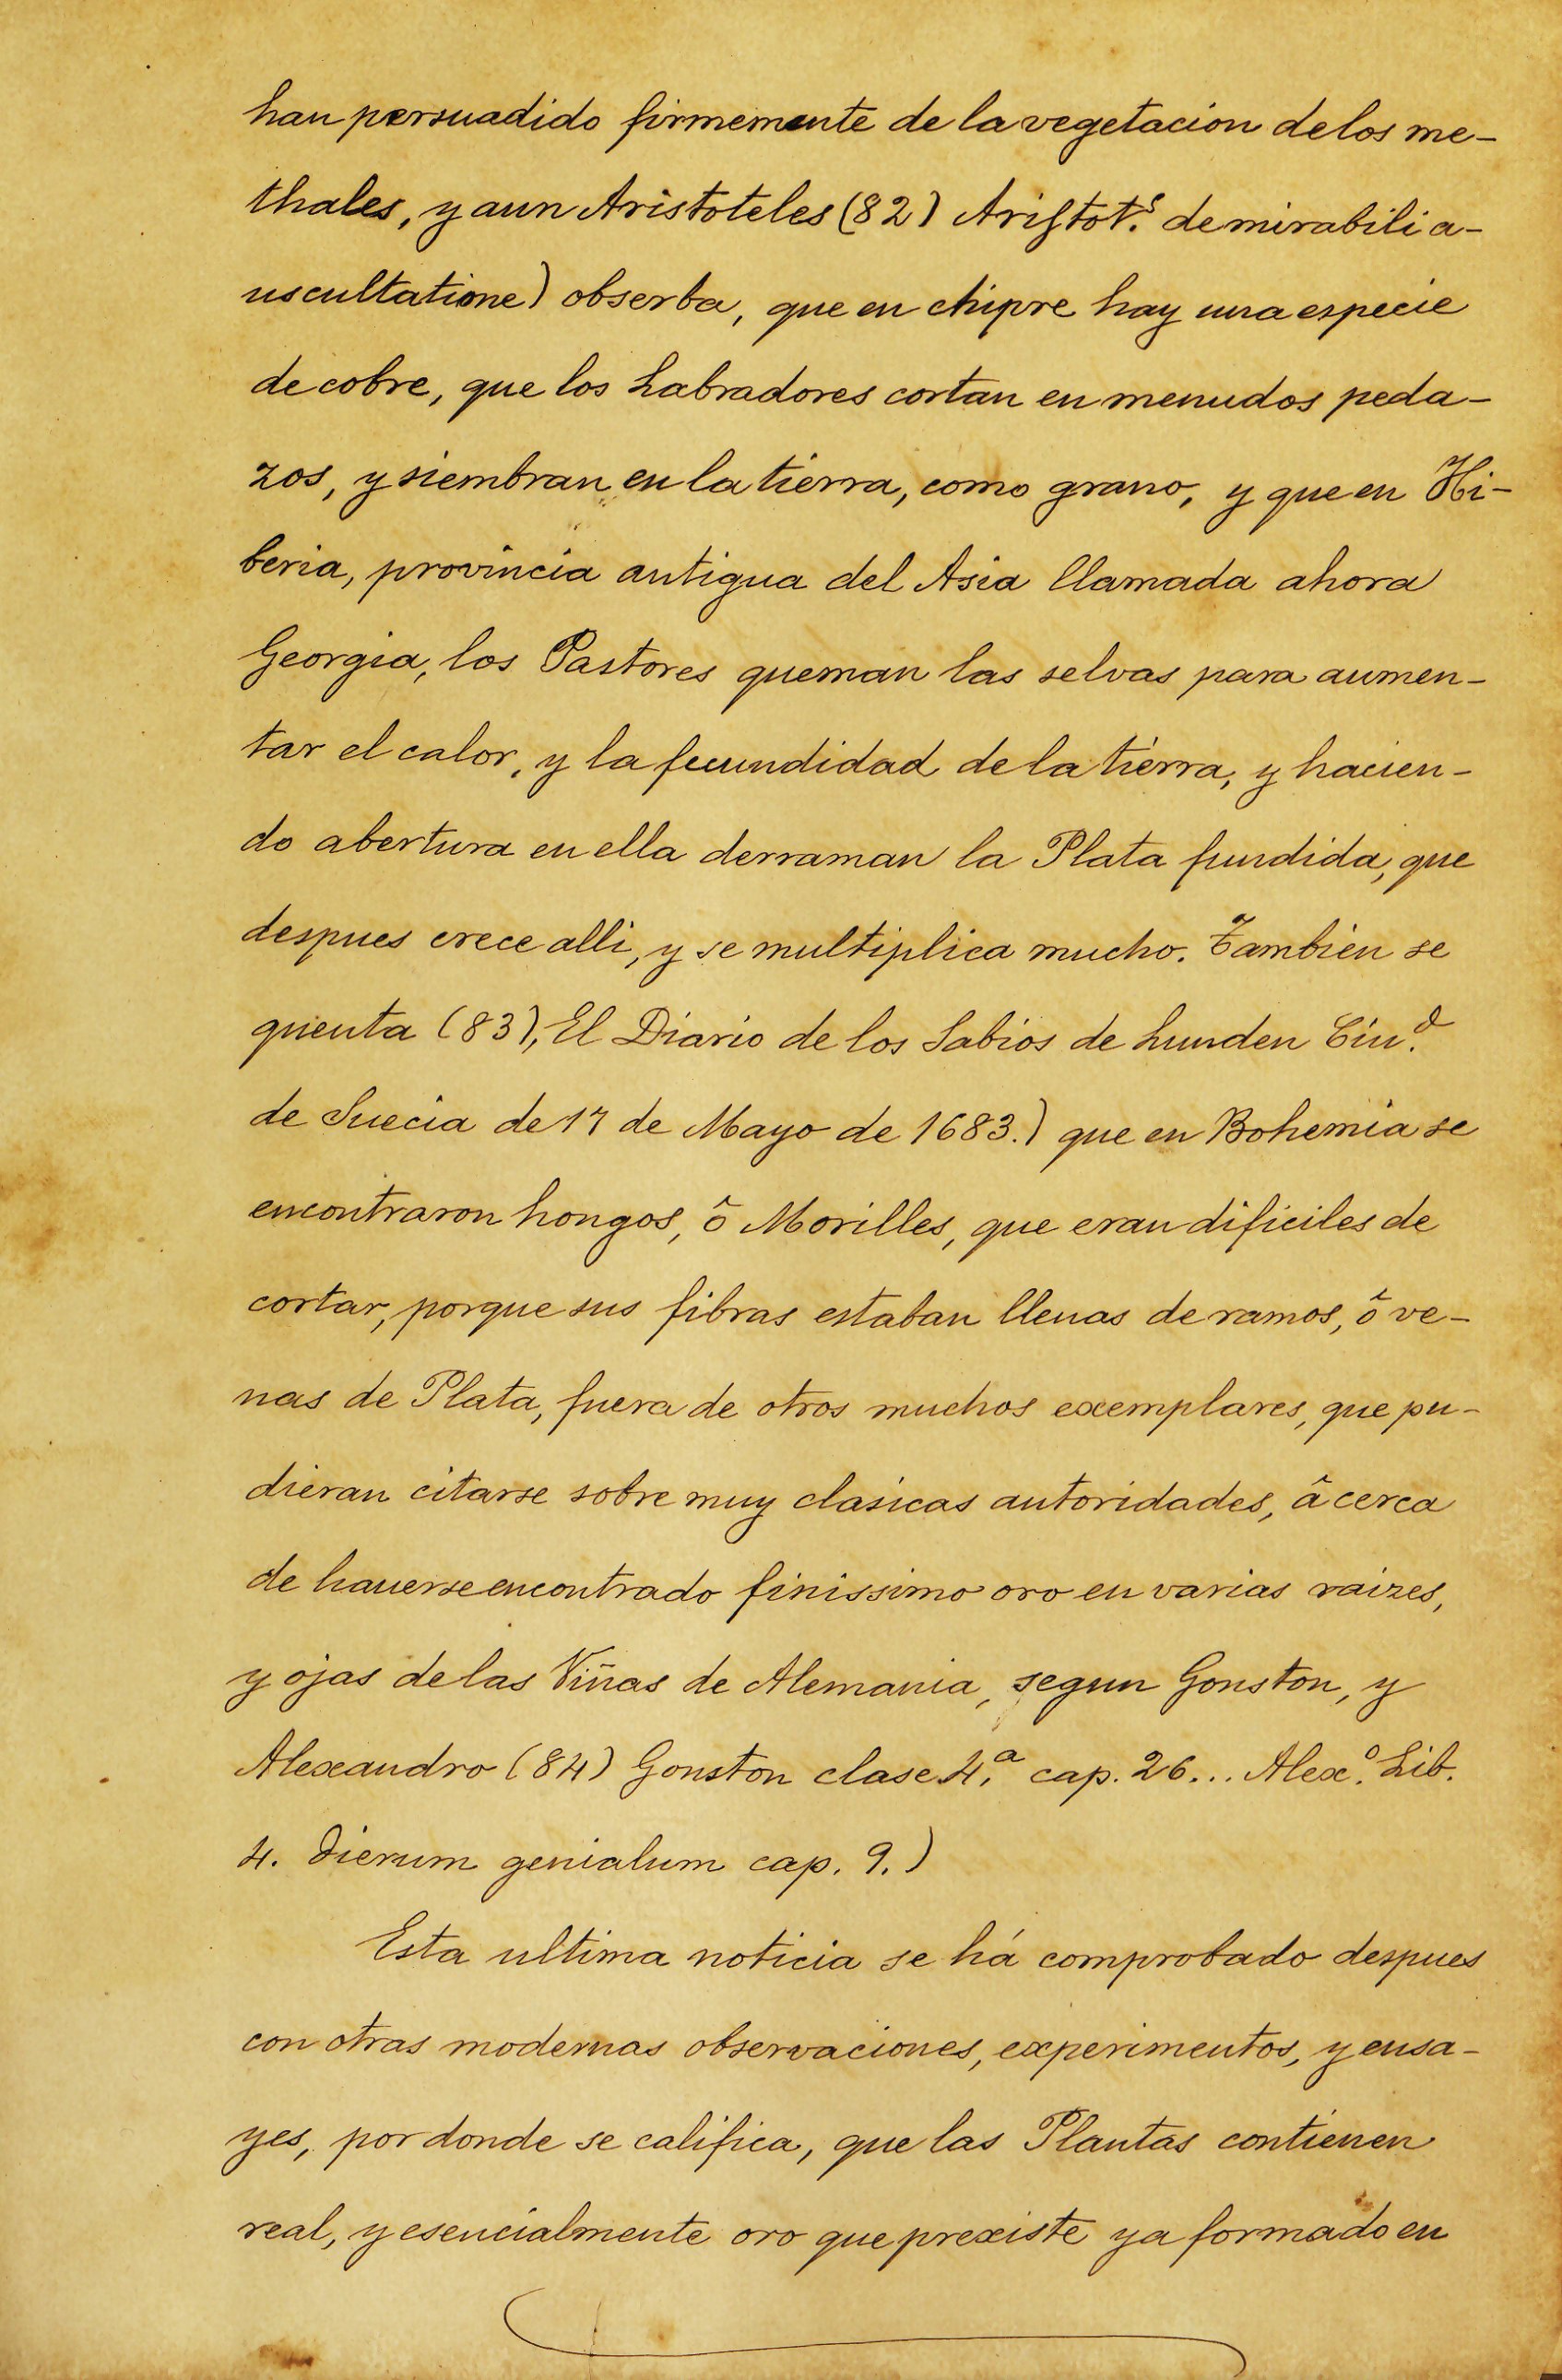 han persuadido firmemente de la vegetacion de los me-
thales, y aun Aristoteles (82) Aristot.s de mirabili a-
uscultatione) obserba, que en chipre hay una especie
de cobre, que los Labradores cortan en menudos peda-
zos, y siembran en la tierra, como grano, y que en Hi-
beria, provincia antigua del Asia llamada ahora
Georgia, los Pastores queman las selvas para aumen-
tar el calor, y la fecundidad de la tierra, y hacien-
do abertura en ella derraman la Plata fundida, que
despues crece alli, y se multiplica mucho. Tambien se
quenta (83), El Diario de los Sabios de Lunden Ciu.d
de Suecia de 17 de Mayo de 1683.) que en Bohemia se
encontraron hongos, ô Morilles, que eran dificiles de
cortar, porque sus fibras estaban llenas de ramos, ô ve-
nas de Plata, fuera de otros muchos exemplares, que pu-
dieran citarse sobre muy clasicas autoridades, â cerca
de hauerse encontrado finissimo oro en varias raizes,
y ojas de las Viñas de Alemania, segun Gonston, y
Alexandro (84) Gonston clase 4.a cap. 26... Alex.o Lib.
4. dierum genialum cap. 9.)
Esta ultima noticia se há comprobado despues
con otras modernas observaciones, experimentos, y ensa-
yes, por donde se califica, que las Plantas contienen
real, y esencialmente oro que prexiste ya formado en